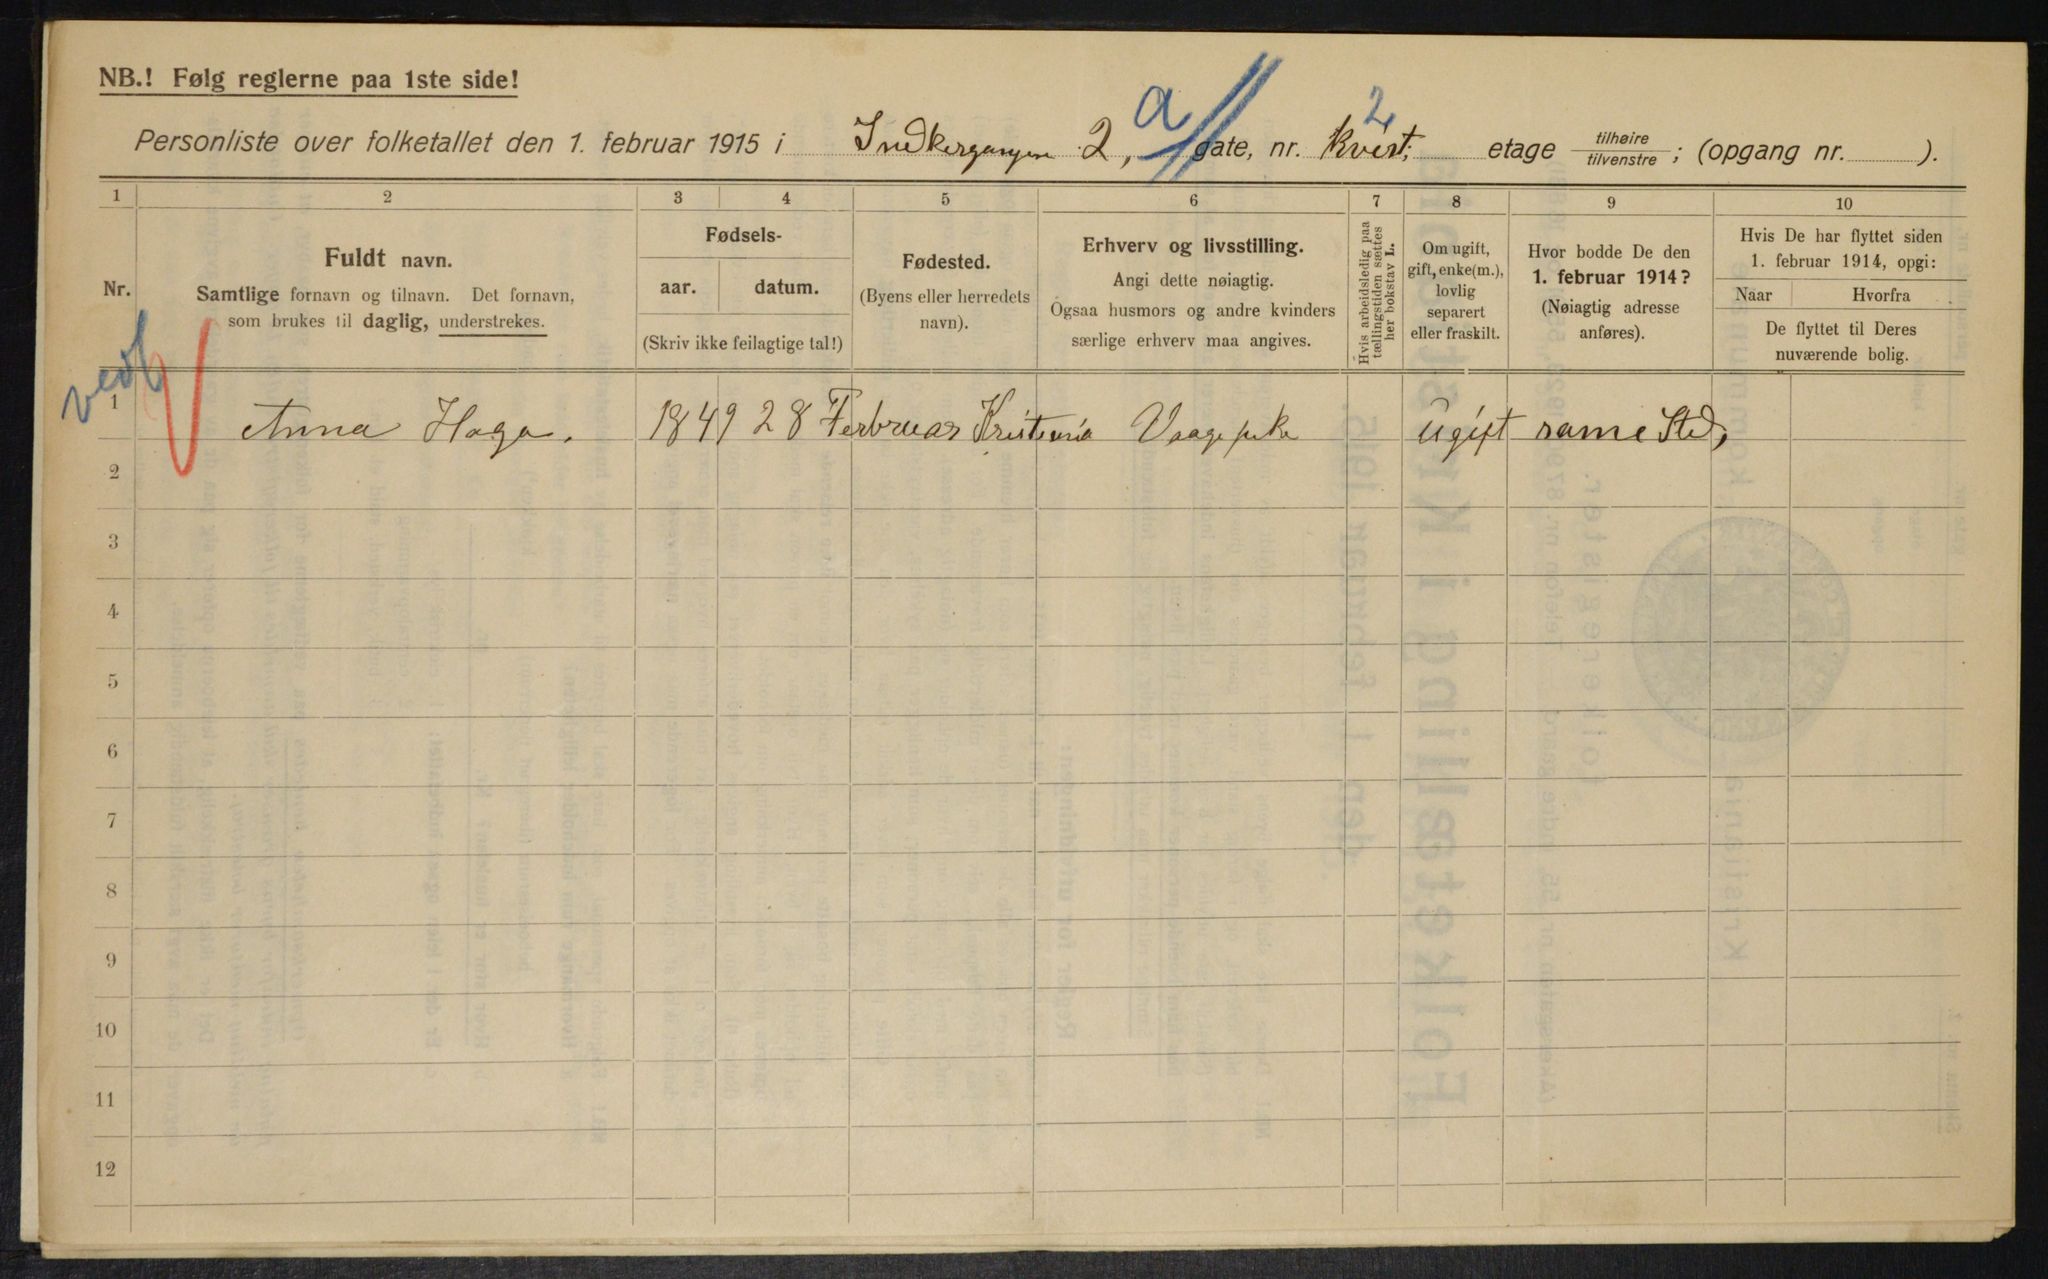 NB.! Følg reglerne paa 1ste side!
Personliste over folketallet den 1. februar 1915 i Indkergangen 2, a gate, nr. kvist, 2 etage tilhøire/tilvenstre; (opgang nr. ).
1 2 3 4 5 6 7 8 9 10
Nr.
Fuldt navn.
Samtlige fornavn og tilnavn. Det fornavn,
som brukes til daglig, understrekes.
Fødsels-
aar. datum.
(Skriv ikke feilagtige tal!)
Fødested.
(Byens eller herredets
navn).
Erhverv og livsstilling.
Angi dette nøiagtig.
Ogsaa husmors og andre kvinders
særlige erhverv maa angives.
Hvis arbeidsledig paa
tællingstiden sættes
her bokstav L.
Om ugift,
gift, enke(m.),
lovlig
separert
eller fraskilt.
Hvor bodde De den
1. februar 1914?
(Nøiagtig adresse
anføres).
Hvis De har flyttet siden
1. februar 1914, opgi:
Naar Hvorfra
De flyttet til Deres
nuværende bolig.
1 Anna Haga. 1849 28 Februar Kristania Vaagepike ugift same Sted,
2
3
4
5
6
7
8
9
10
11
12